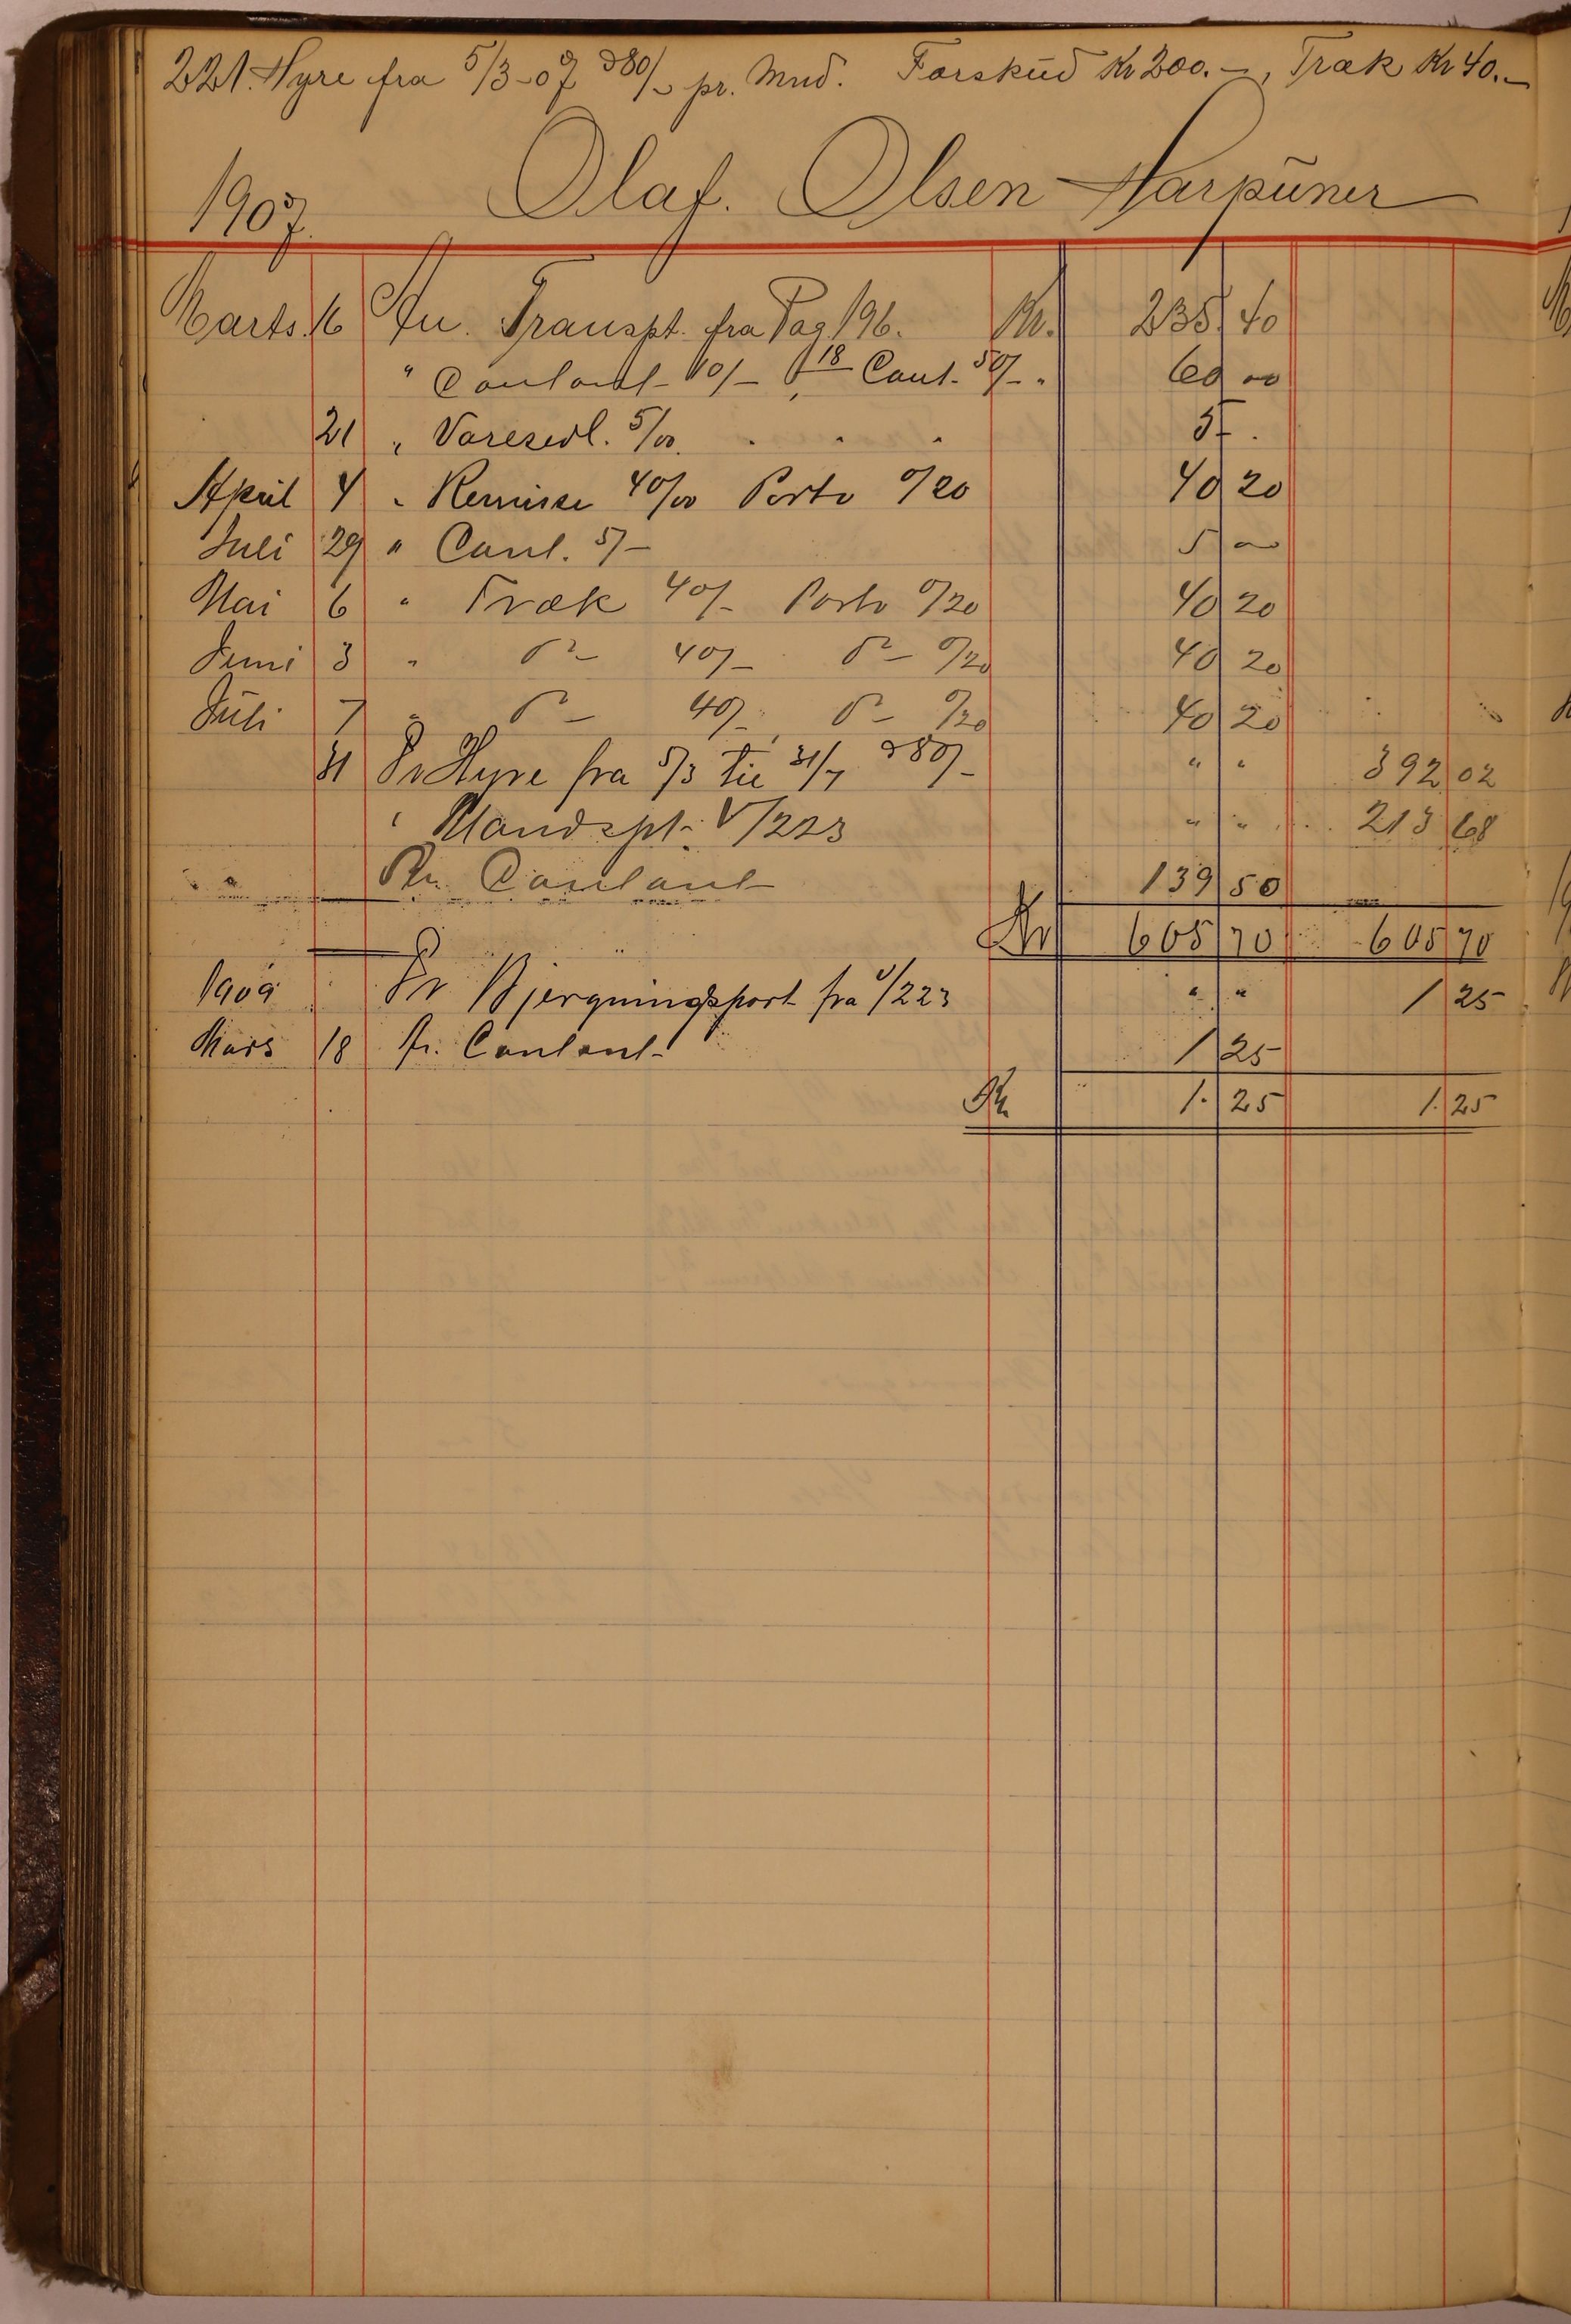 221. Hyre fra 5/3-07 80/- pr. Mnd. Forskud Kr 200.-, Træk Kr 40.-
1907. Olaf. Olsen Harpuner
Marts. 16 An. Transpt. fra Pag 196. Kr. 235 40
" Contant 10/- 18 Cont. 50/- 60 00
21 " Varesedl. 5/00 5 .
April 4 " Remisse 40/00 Porto 0/20 40 20
Juli 29 " Cont. 5/- 5 00
Mai 6 " Træk 40/- Porto 0/20 40 20
Juni 3 " do 40/- do 0/20 40 20
Juli 7 " do 40/- do 0/20 40 20
31 Pr Hyre fra 5/3 til 31/7 80/- " " 392 02
" Mandspt. V/223 " " 213 68
An Contant 139 50
Kr 605 70 605 70
1909 Pr Bjergningsport fra V/223 " " 1 25
Mars 18 An. Contant 1 25
Kr. 1. 25 1. 25